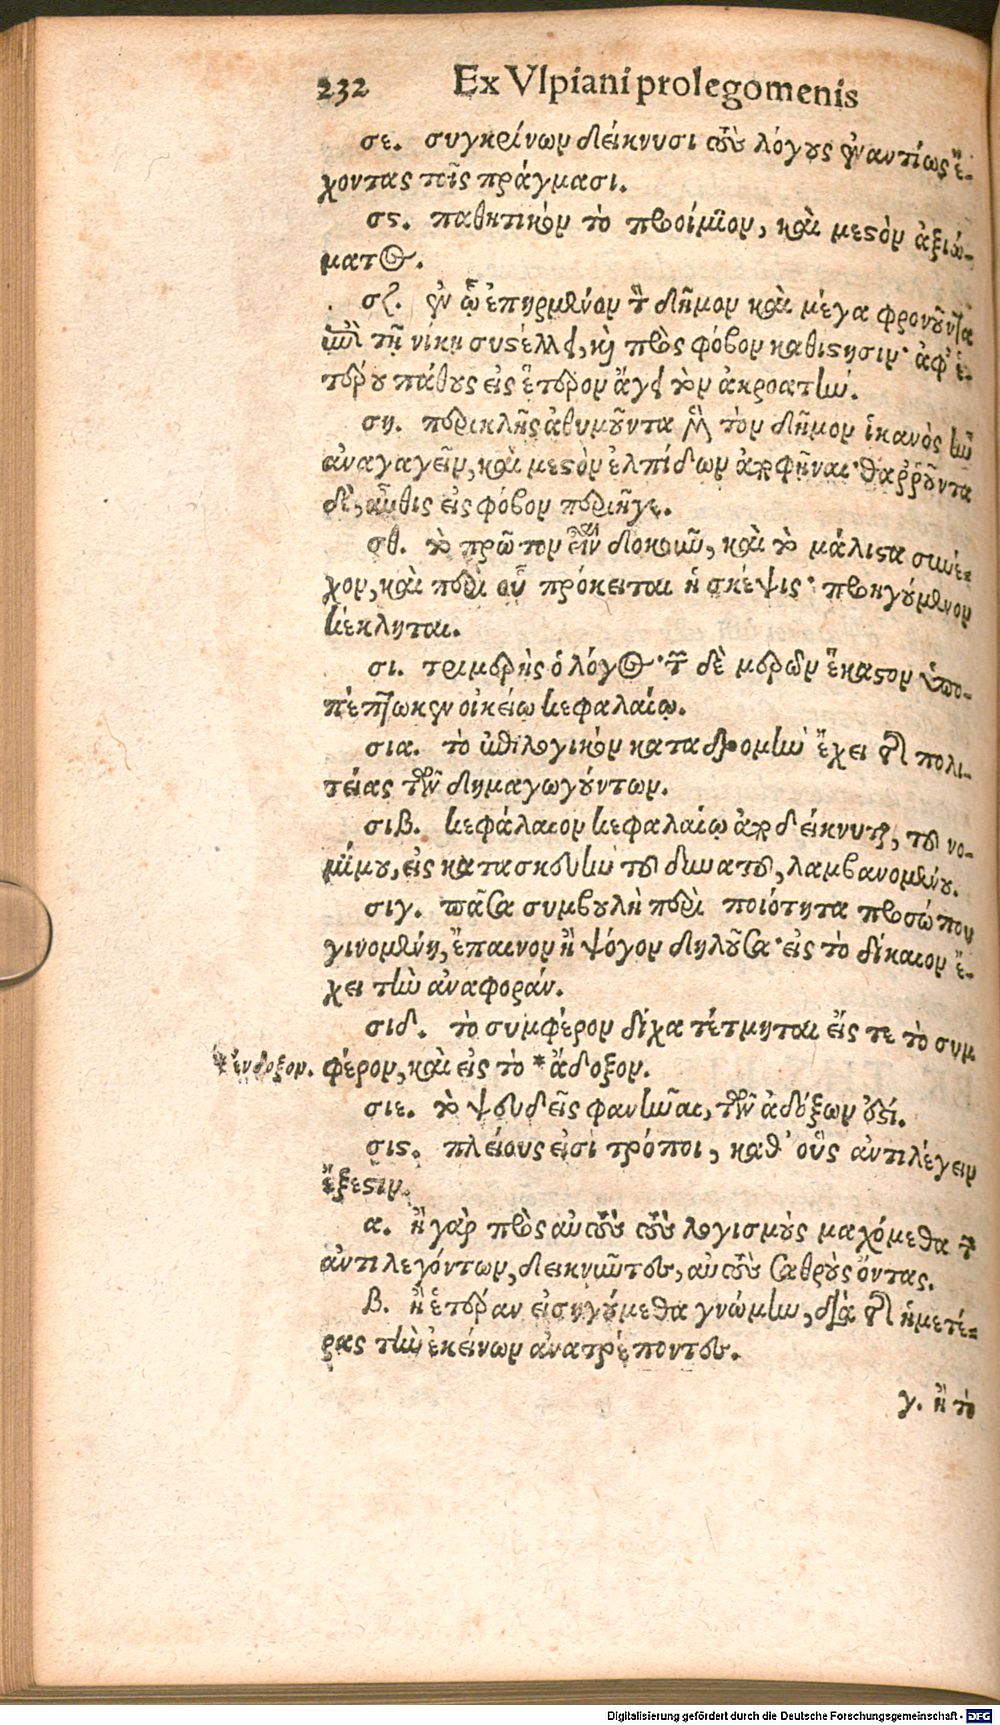 232 Ex Vlpiani prolegomenis
σε. συγκρίνων δείκνυσι τοὺς λόγους ἐναντίως ἔ-
χοντας τοῖς πράγμασι.
σϛ. παθητικὸν τὸ προοίμιον, καὶ μεστὸν ἀξιώ-
ματος.
σζ. ἐν ᾧ ἐπηρμένον τὸν δῆμον καὶ μέγα φρονοῦντα
ἐπὶ τῇ νίκῃ συστέλλει, καὶ πρὸς φόβον καθίστησιν· ἀφ' ἑ-
τέρου πάθους εἰς ἕτερον ἄγει τὸν ἀκροατήν.
ση. περικλῆς ἀθυμοῦντα μὲν τὸν δῆμον ἱκανὸς ἦν
ἀναγαγεῖν, καὶ μεστὸν ἐλπίδων ἀποφῆναι· θαῤῥοῦντα
δὲ, αὖθις εἰς φόβον περιῆγε.
σθ. τὸ πρῶτον εἶναι δοκοῦν, καὶ τὸ μάλιστα συνέ-
χον, καὶ περὶ οὗ πρόκειται ἡ σκέψις· προηγούμενον
κέκληται.
σι. τριμερὴς ὁ λόγος· τῶν δὲ μερῶν ἕκαστον ὑπο-
πέπτωκεν οἰκείῳ κεφαλαίῳ.
σια. τὸ ἀντιλογικὸν καταδρομὴν ἔχει τῆς πολι-
τείας τῶν δημαγωγούντων.
σιβ. κεφάλαιον κεφαλαίῳ ἀποδείκνυται, τοῦ νο-
μίμου, εἰς κατασκευὴν τοῦ δυνατοῦ, λαμβανομένου.
σιγ. πᾶσα συμβουλὴ περὶ ποιότητα προσώπου
γινομένη, ἔπαινον ἢ ψόγον δηλοῦσα· εἰς τὸ δίκαιον ἔ-
χει τὴν ἀναφοράν.
σιδ. τὸ συμφέρον δίχα τέτμηται εἴς τε τὸ συμ
*ἔνδοξον. φέρον, καὶ εἰς τὸ *ἄδοξον.
σιε. τὸ ψευδεῖς φανῆναι, τῶν ἀδόξων ἐστί.
σιϛ. πλείους εἰσὶ τρόποι, καθ' οὓς ἀντιλέγειν
ἔξεστιν.
α. ἢ γὰρ πρὸς αὐτοὺς τοὺς λογισμοὺς μαχόμεθα τῶν
ἀντιλεγόντων, δεικνῦντες, αὐτοὺς σαθροὺς ὄντας.
β. ἢ ἑτέραν εἰσηγούμεθα γνώμην, διὰ τῆς ἡμετέ-
ρας τὴν ἐκείνων ἀνατρέποντες.
γ. ἢ τὸ
Digitalisierung gefördert durch die Deutsche Forschungsgemeinschaft - DFG